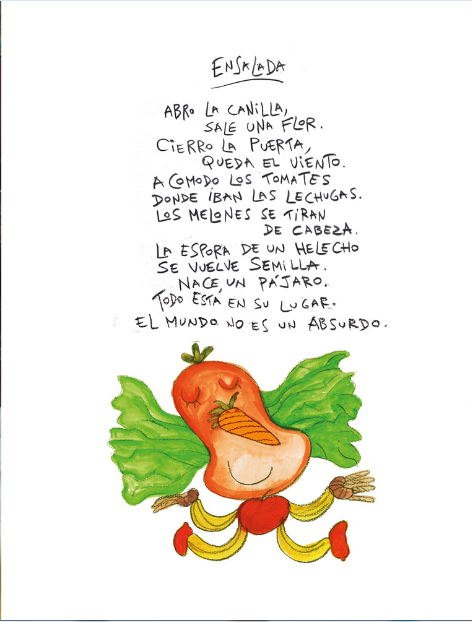 ENSALADA
ABRO LA CANILLA,
SALE UNA FLOR.
CIERRO LA PUERTA,
QUEDA EL VIENTO.
ACOMODO LOS TOMATES
DONDE IBAN LAS LECHUGAS.
LOS MELONES SE TIRAN
DE CABEZA.
LA ESPORA DE UN HELECHO
SE VUELVE SEMILLA.
NACE, UN PÁJARO.
TODO ESTA EN SU LUGAR.
EL MUNDO NO ES UN ABSURDO.